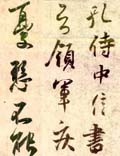 孔侍中信書
知領軍疾
憂懸不能